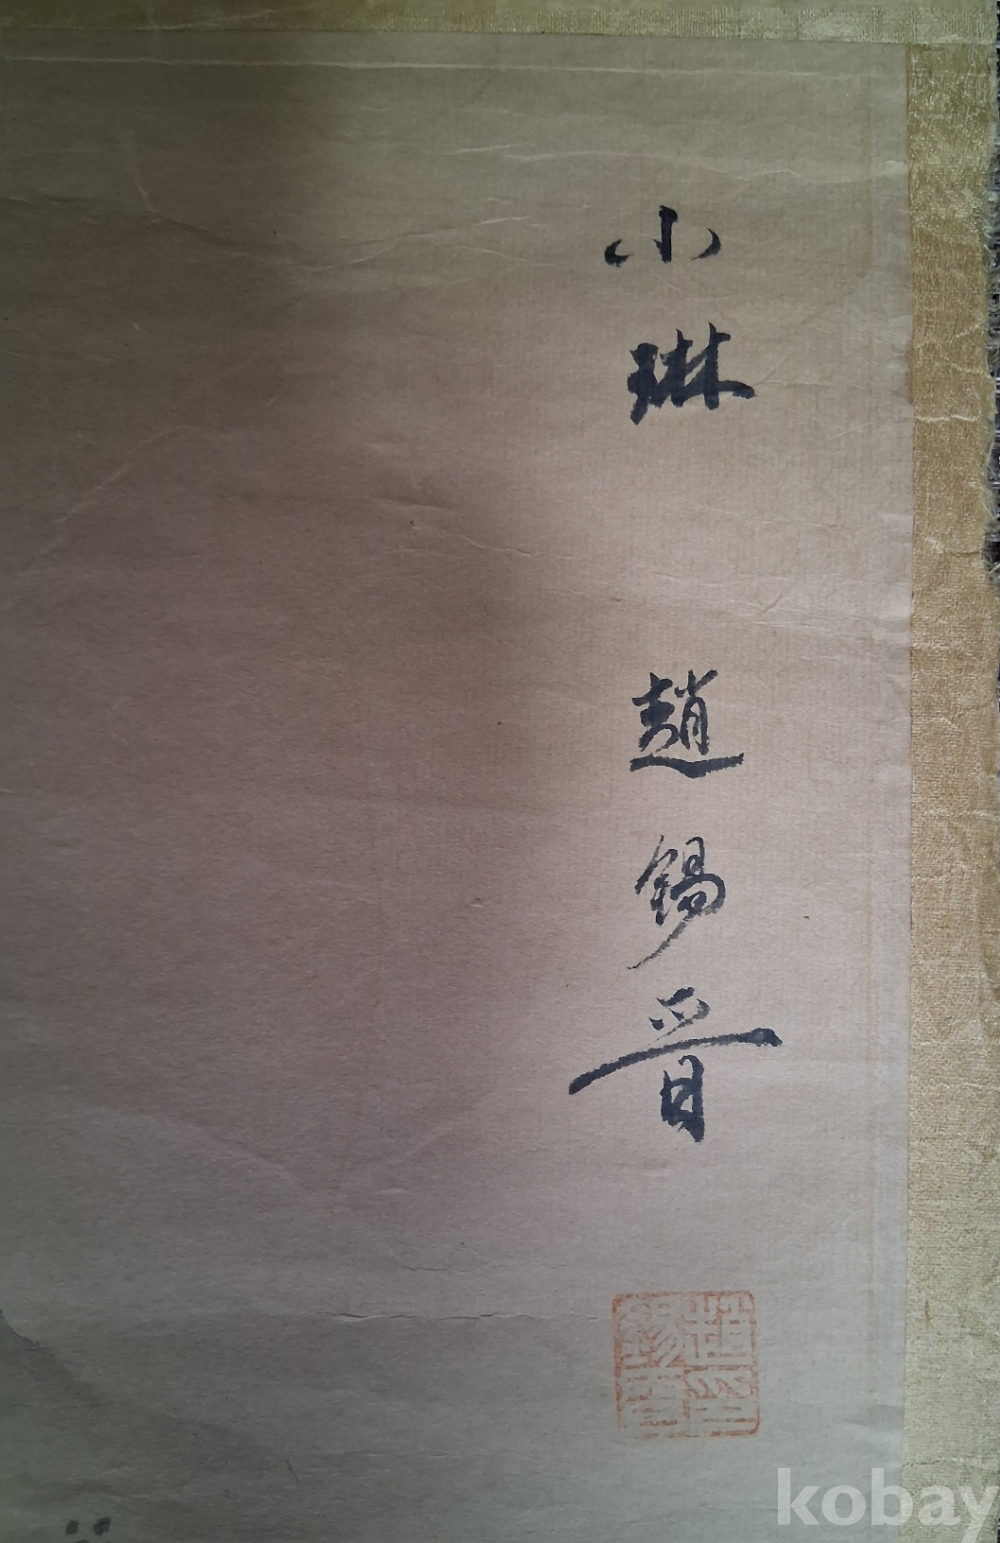 小琳 趙錫晉
趙印
錫晉
kobay